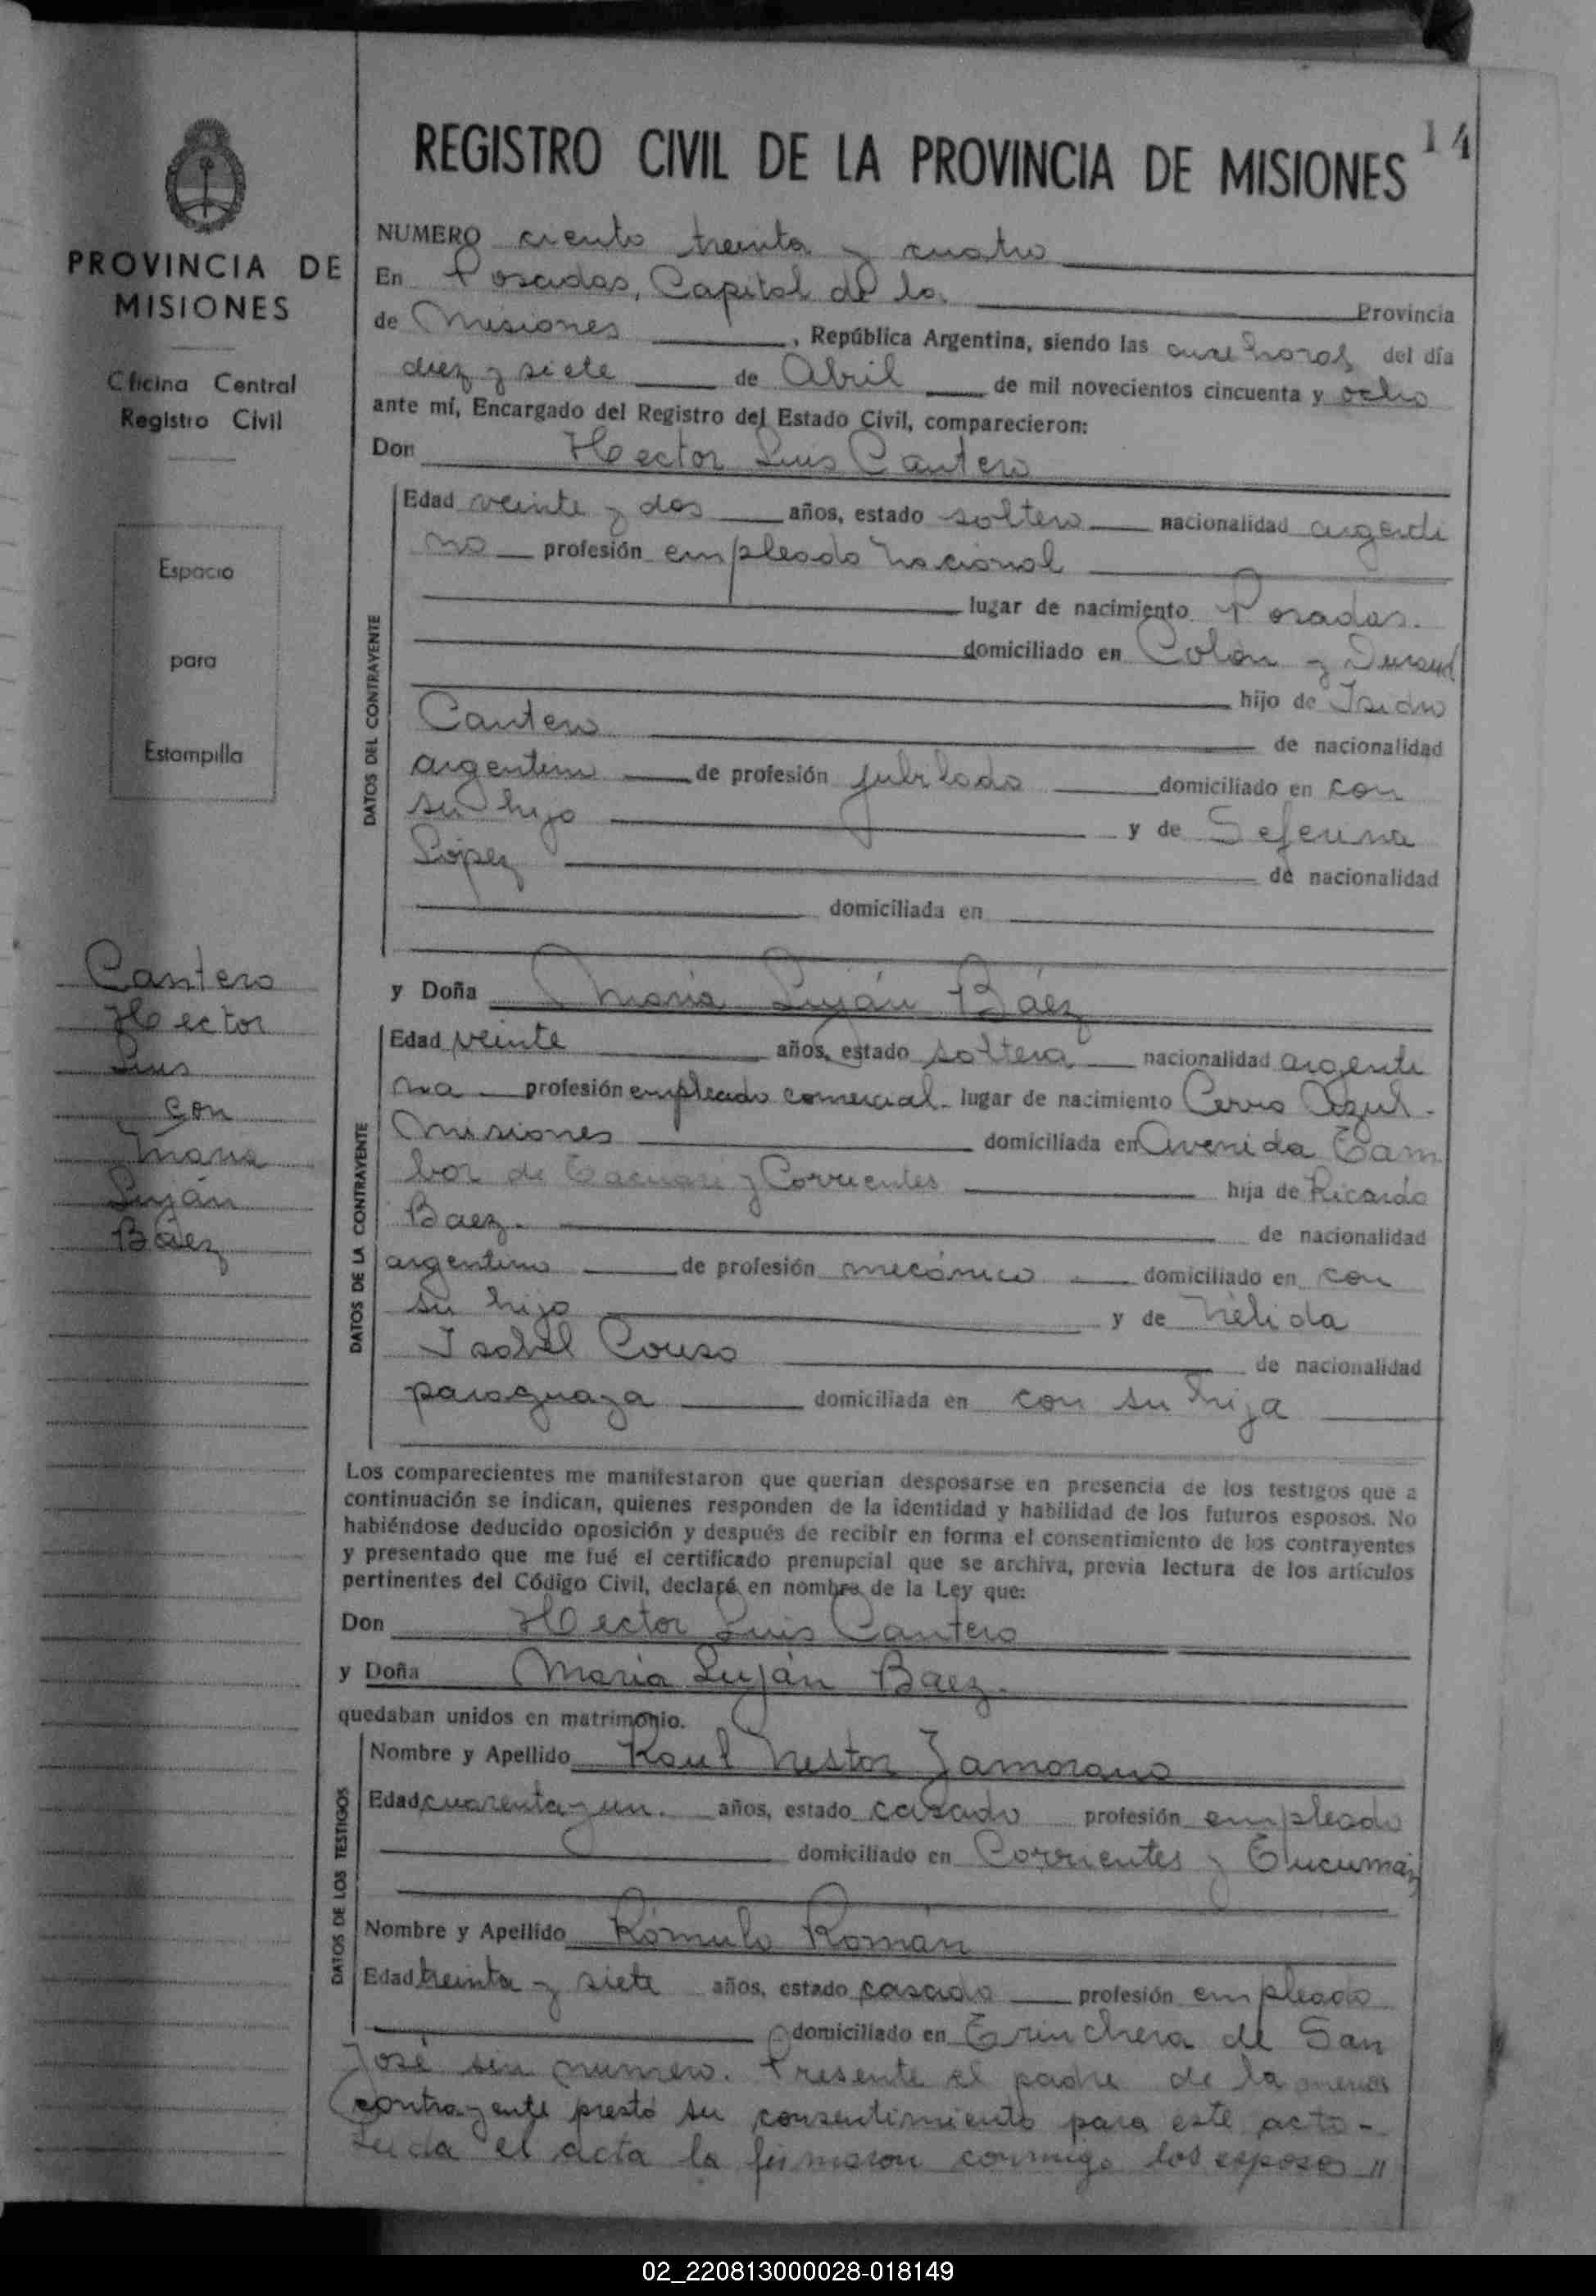 14
REGISTRO CIVIL DE LA PROVINCIA DE MISIONES
PROVINCIA DE
MISIONES
Oficina Central
Registro Civil
Espacio
para
Estampilla
Cantero
Hector
Luis
con
Maria
Luján
Báez
NUMERO ciento treinta y cuatro
En Posadas, Capital de la Provincia
de Misiones, República Argentina, siendo las once horas del día
diez y siete de Abril de mil novecientos cincuenta y ocho
ante mí, Encargado del Registro del Estado Civil, comparecieron:
Don Hector Luis Cantero
DATOS DEL CONTRAYENTE
Edad veinte y dos años, estado soltero nacionalidad argenti
no profesión empleado nacional
lugar de nacimiento Posadas.
domiciliado en Colón y
hijo de Isidro
Cantero de nacionalidad
argentino de profesión jubilado domiciliado en con
su hijo y de Seferina
López de nacionalidad
domiciliada en
y Doña María Luján Báez
DATOS DE LA CONTRAYENTE
Edad veinte años, estado soltera nacionalidad argenti
na profesión empleado comercial. lugar de nacimiento Cerro Azul.
Misiones domiciliada en Avenida Tam
bor de Tacuari y Corrientes hija de Ricardo
Baez. de nacionalidad
argentino de profesión mecánico domiciliado en con
su hija y de Nélida
Isabel Couso de nacionalidad
paraguaya domiciliada en con su hija
Los comparecientes me manifestaron que querían desposarse en presencia de los testigos que a
continuación se indican, quienes responden de la identidad y habilidad de los futuros esposos. No
habiéndose deducido oposición y después de recibir en forma el consentimiento de los contrayentes
y presentado que me fué el certificado prenupcial que se archiva, previa lectura de los artículos
pertinentes del Código Civil, declaré en nombre de la Ley que:
Don Hector Luis Cantero
y Doña María Luján Baez.
quedaban unidos en matrimonio.
DATOS DE LOS TESTIGOS
Nombre y Apellido Raul Nestor Zamorano
Edad cuarenta y un. años, estado casado profesión empleado
domiciliado en Corrientes y Tucumán
Nombre y Apellido Rómulo Román
Edad treinta y siete años, estado casado profesión empleado
domiciliado en Trinchera de San
José sin numero. Presente el padre de la menor
contrayente prestó su consentimiento para este acto-
Leida el acta la firmaron conmigo los esposos "
02_220813000028-018149